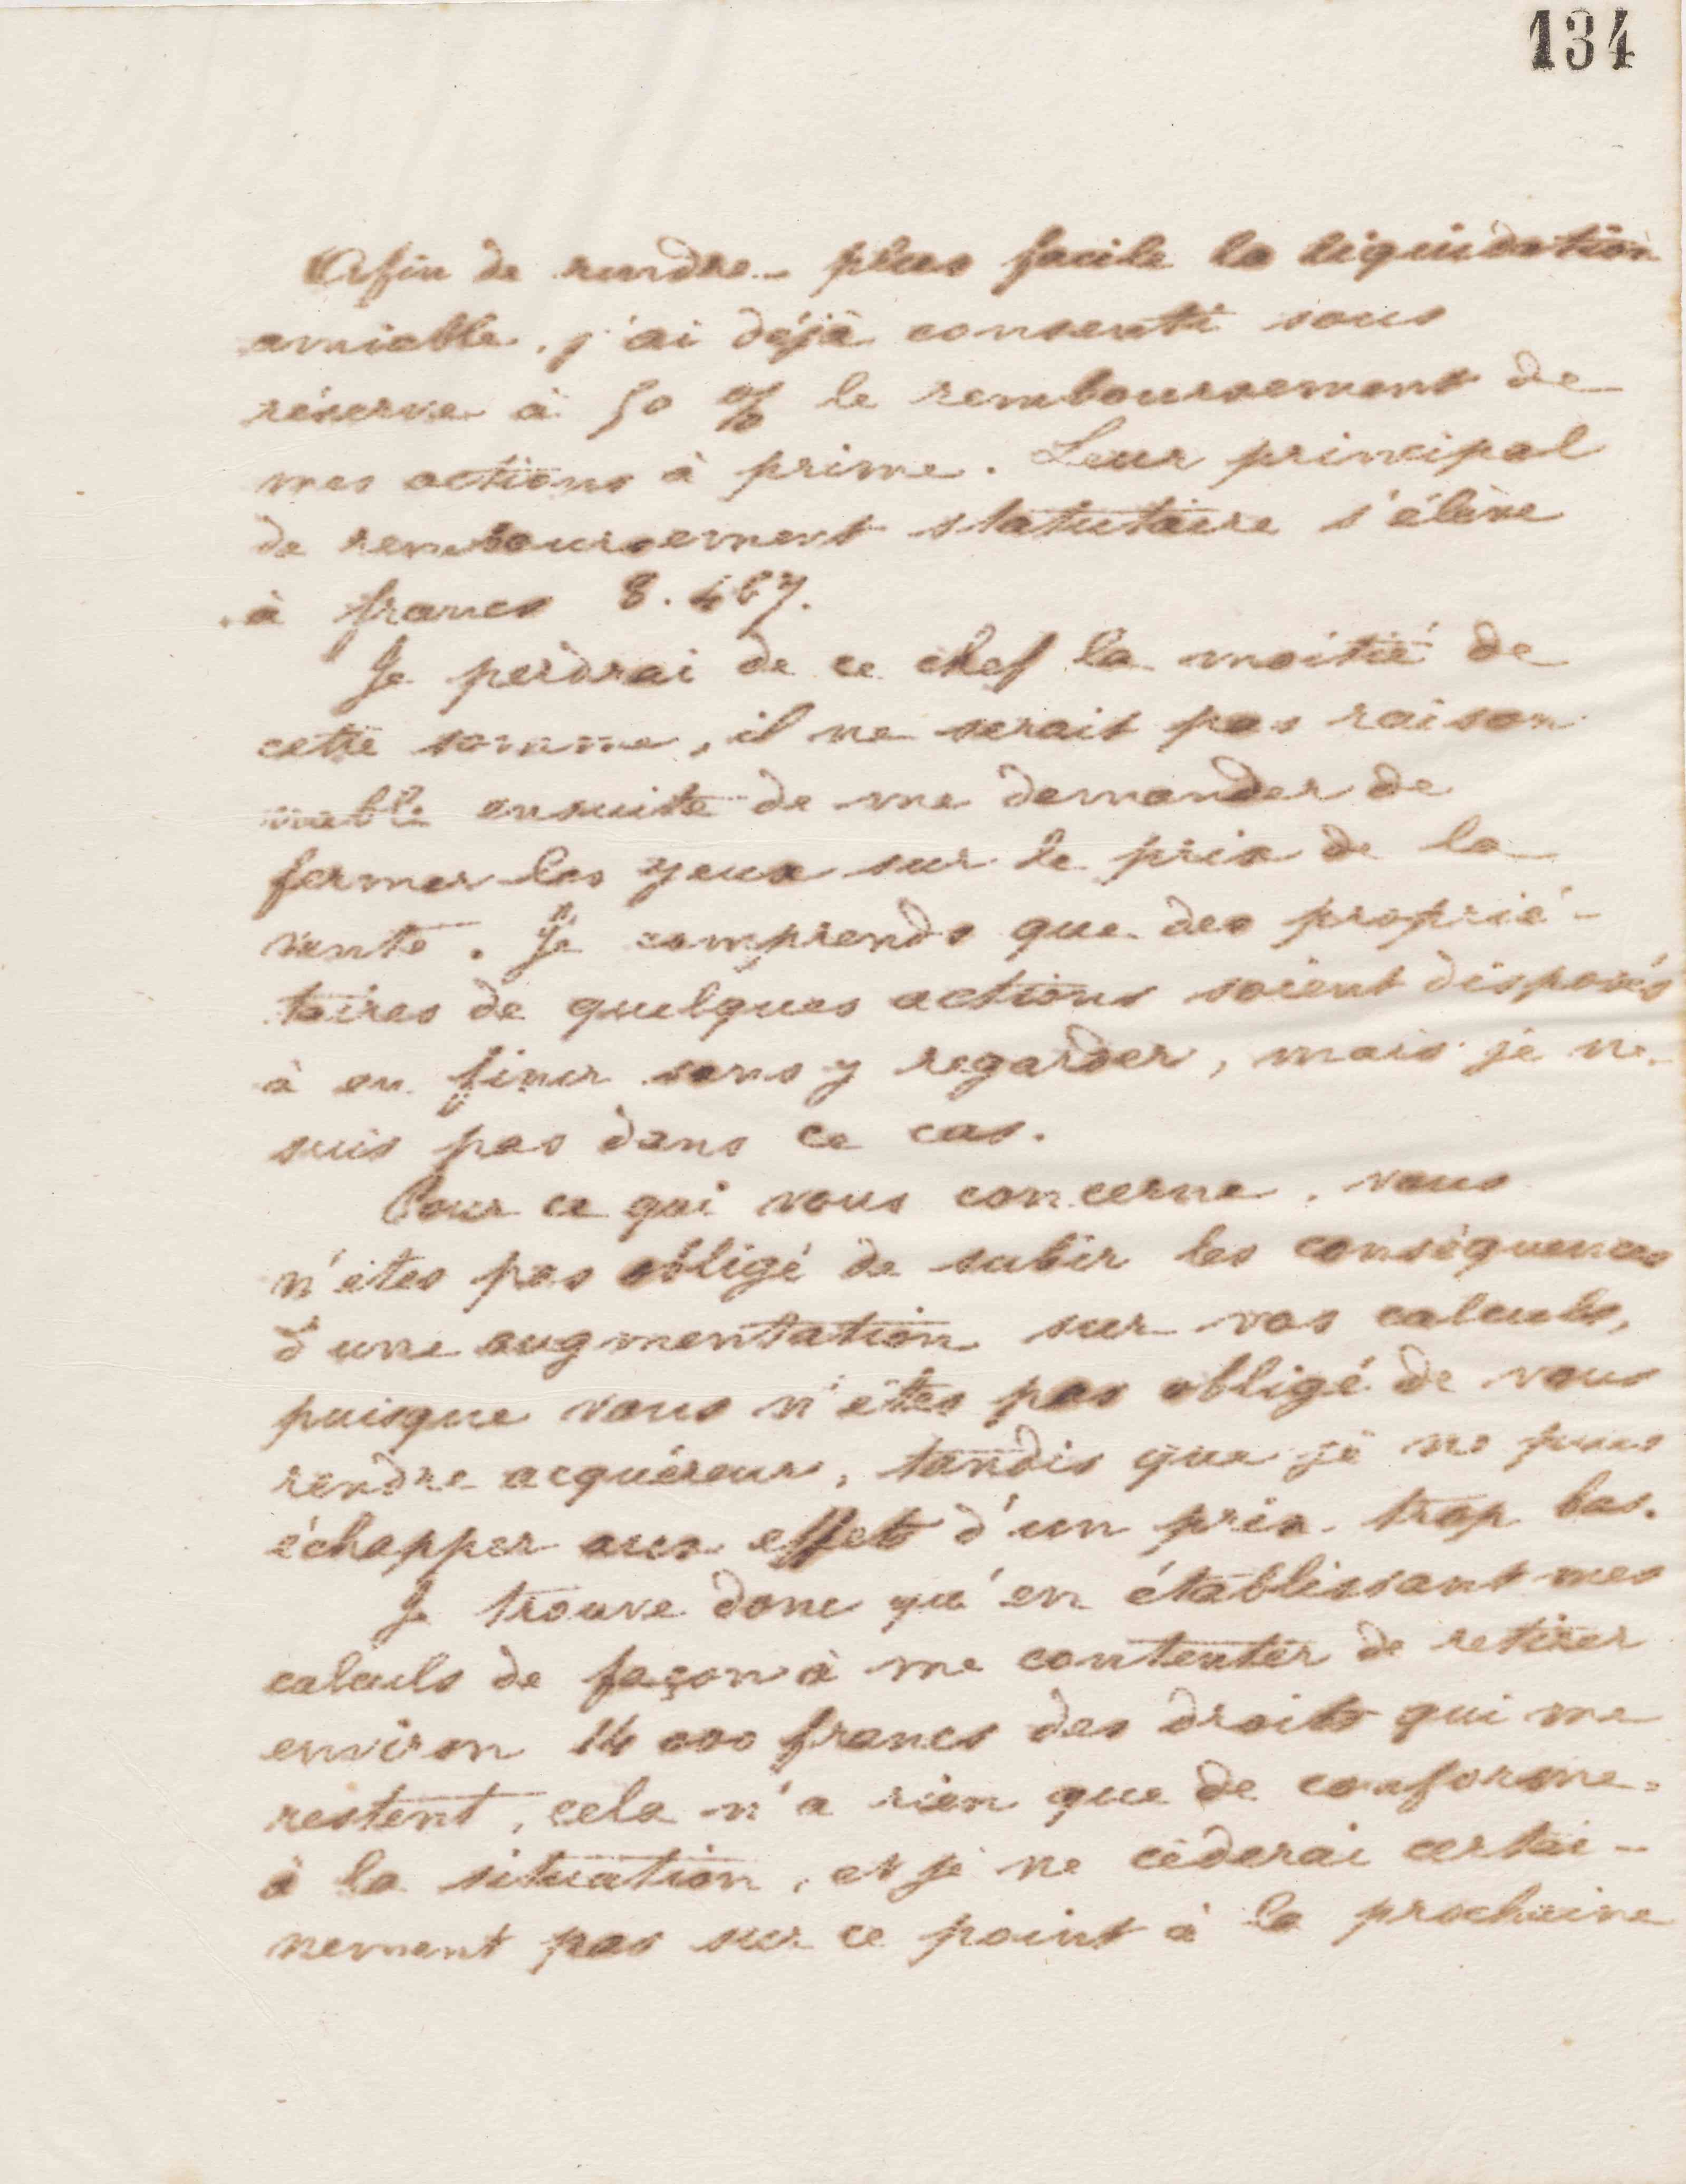 134
Afin de rendre plus facile la liquidation
amiable, j'ai déjà consenti sous
réserve à 50 % le remboursement de
mes actions à prime. Leur principal
de remboursement statutaire s'élève
à francs 8.467.
Je perdrai de ce chef la moitié de
cette somme, il ne serait pas raison
nable ensuite de me demander de
fermer les yeux sur le prix de la
vente. Je comprends que des proprié-
taires de quelques actions soient disposés
à en finir sans y regarder, mais je ne
suis pas dans ce cas.
Pour ce qui vous concerne, vous
n'êtes pas obligé de subir les conséquences
d'une augmentation sur vos calculs,
puisque vous n'êtes pas obligé de vous
rendre acquéreur, tandis que je ne puis
échapper aux effets d'un prix trop bas.
Je trouve donc qu'en établissant mes
calculs de façon à me contenter de retirer
environ 14 000 francs des droits qui me
restent, cela n'a rien que de conforme
à la situation, et je ne céderai certai-
nement pas sur ce point à la prochaine